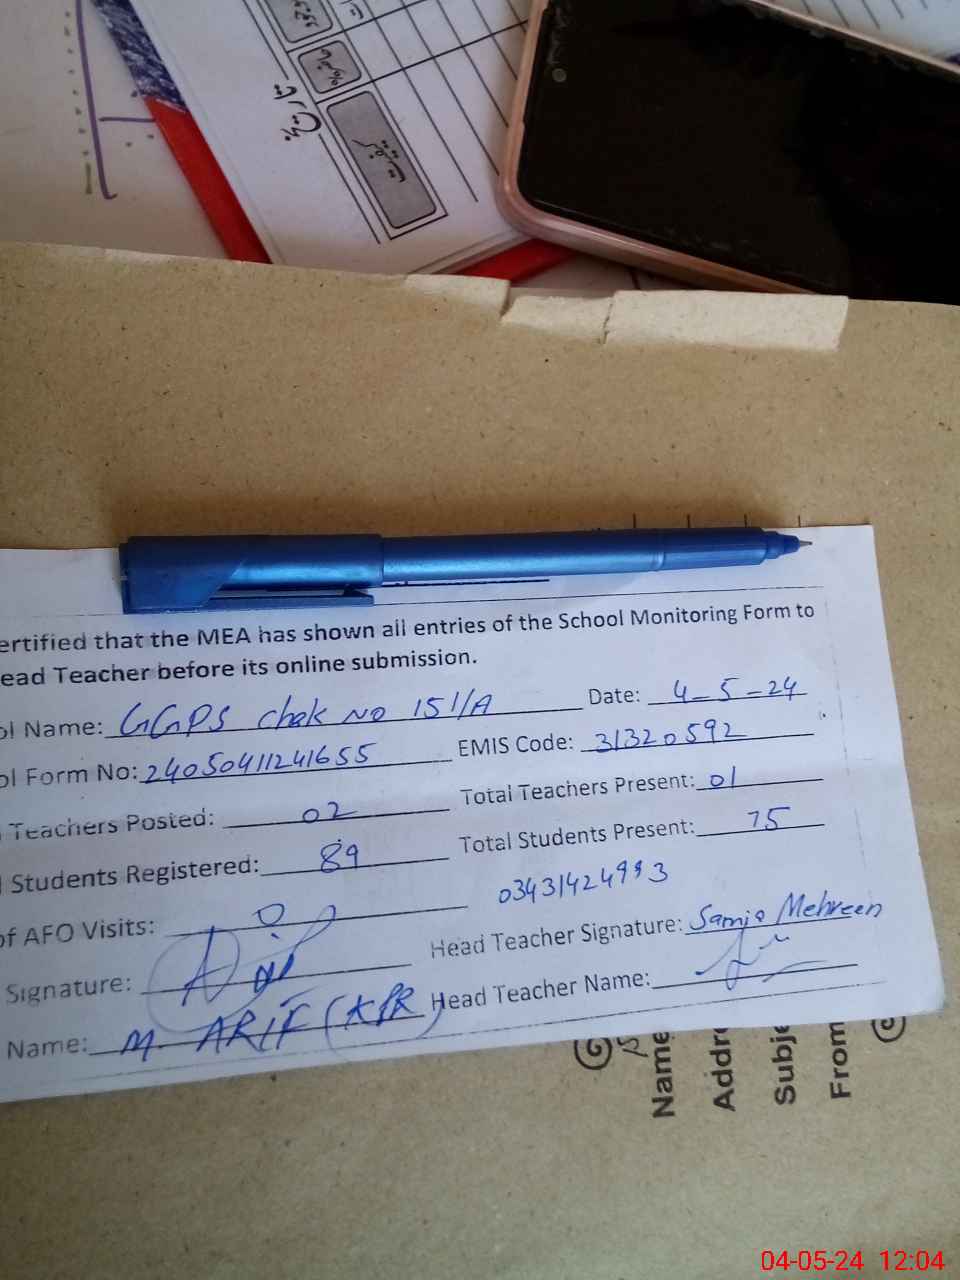 کیفیت
ertified that the MEA has shown all entries of the School Monitoring Form to
ead Teacher before its online submission.
ol Name: GGPS chak No 151/A Date: 4-5-24
ol Form No: 24050411241655 EMIS Code: 31320592
Teachers Posted: 02 Total Teachers Present: 01
l Students Registered: 89 Total Students Present: 75
03431424993
of AFO Visits: 0
Signature: Head Teacher Signature: Samia Mehreen
Name: M. ARIF Head Teacher Name:
Name
Addre
Subje
From
04-05-24 12:04